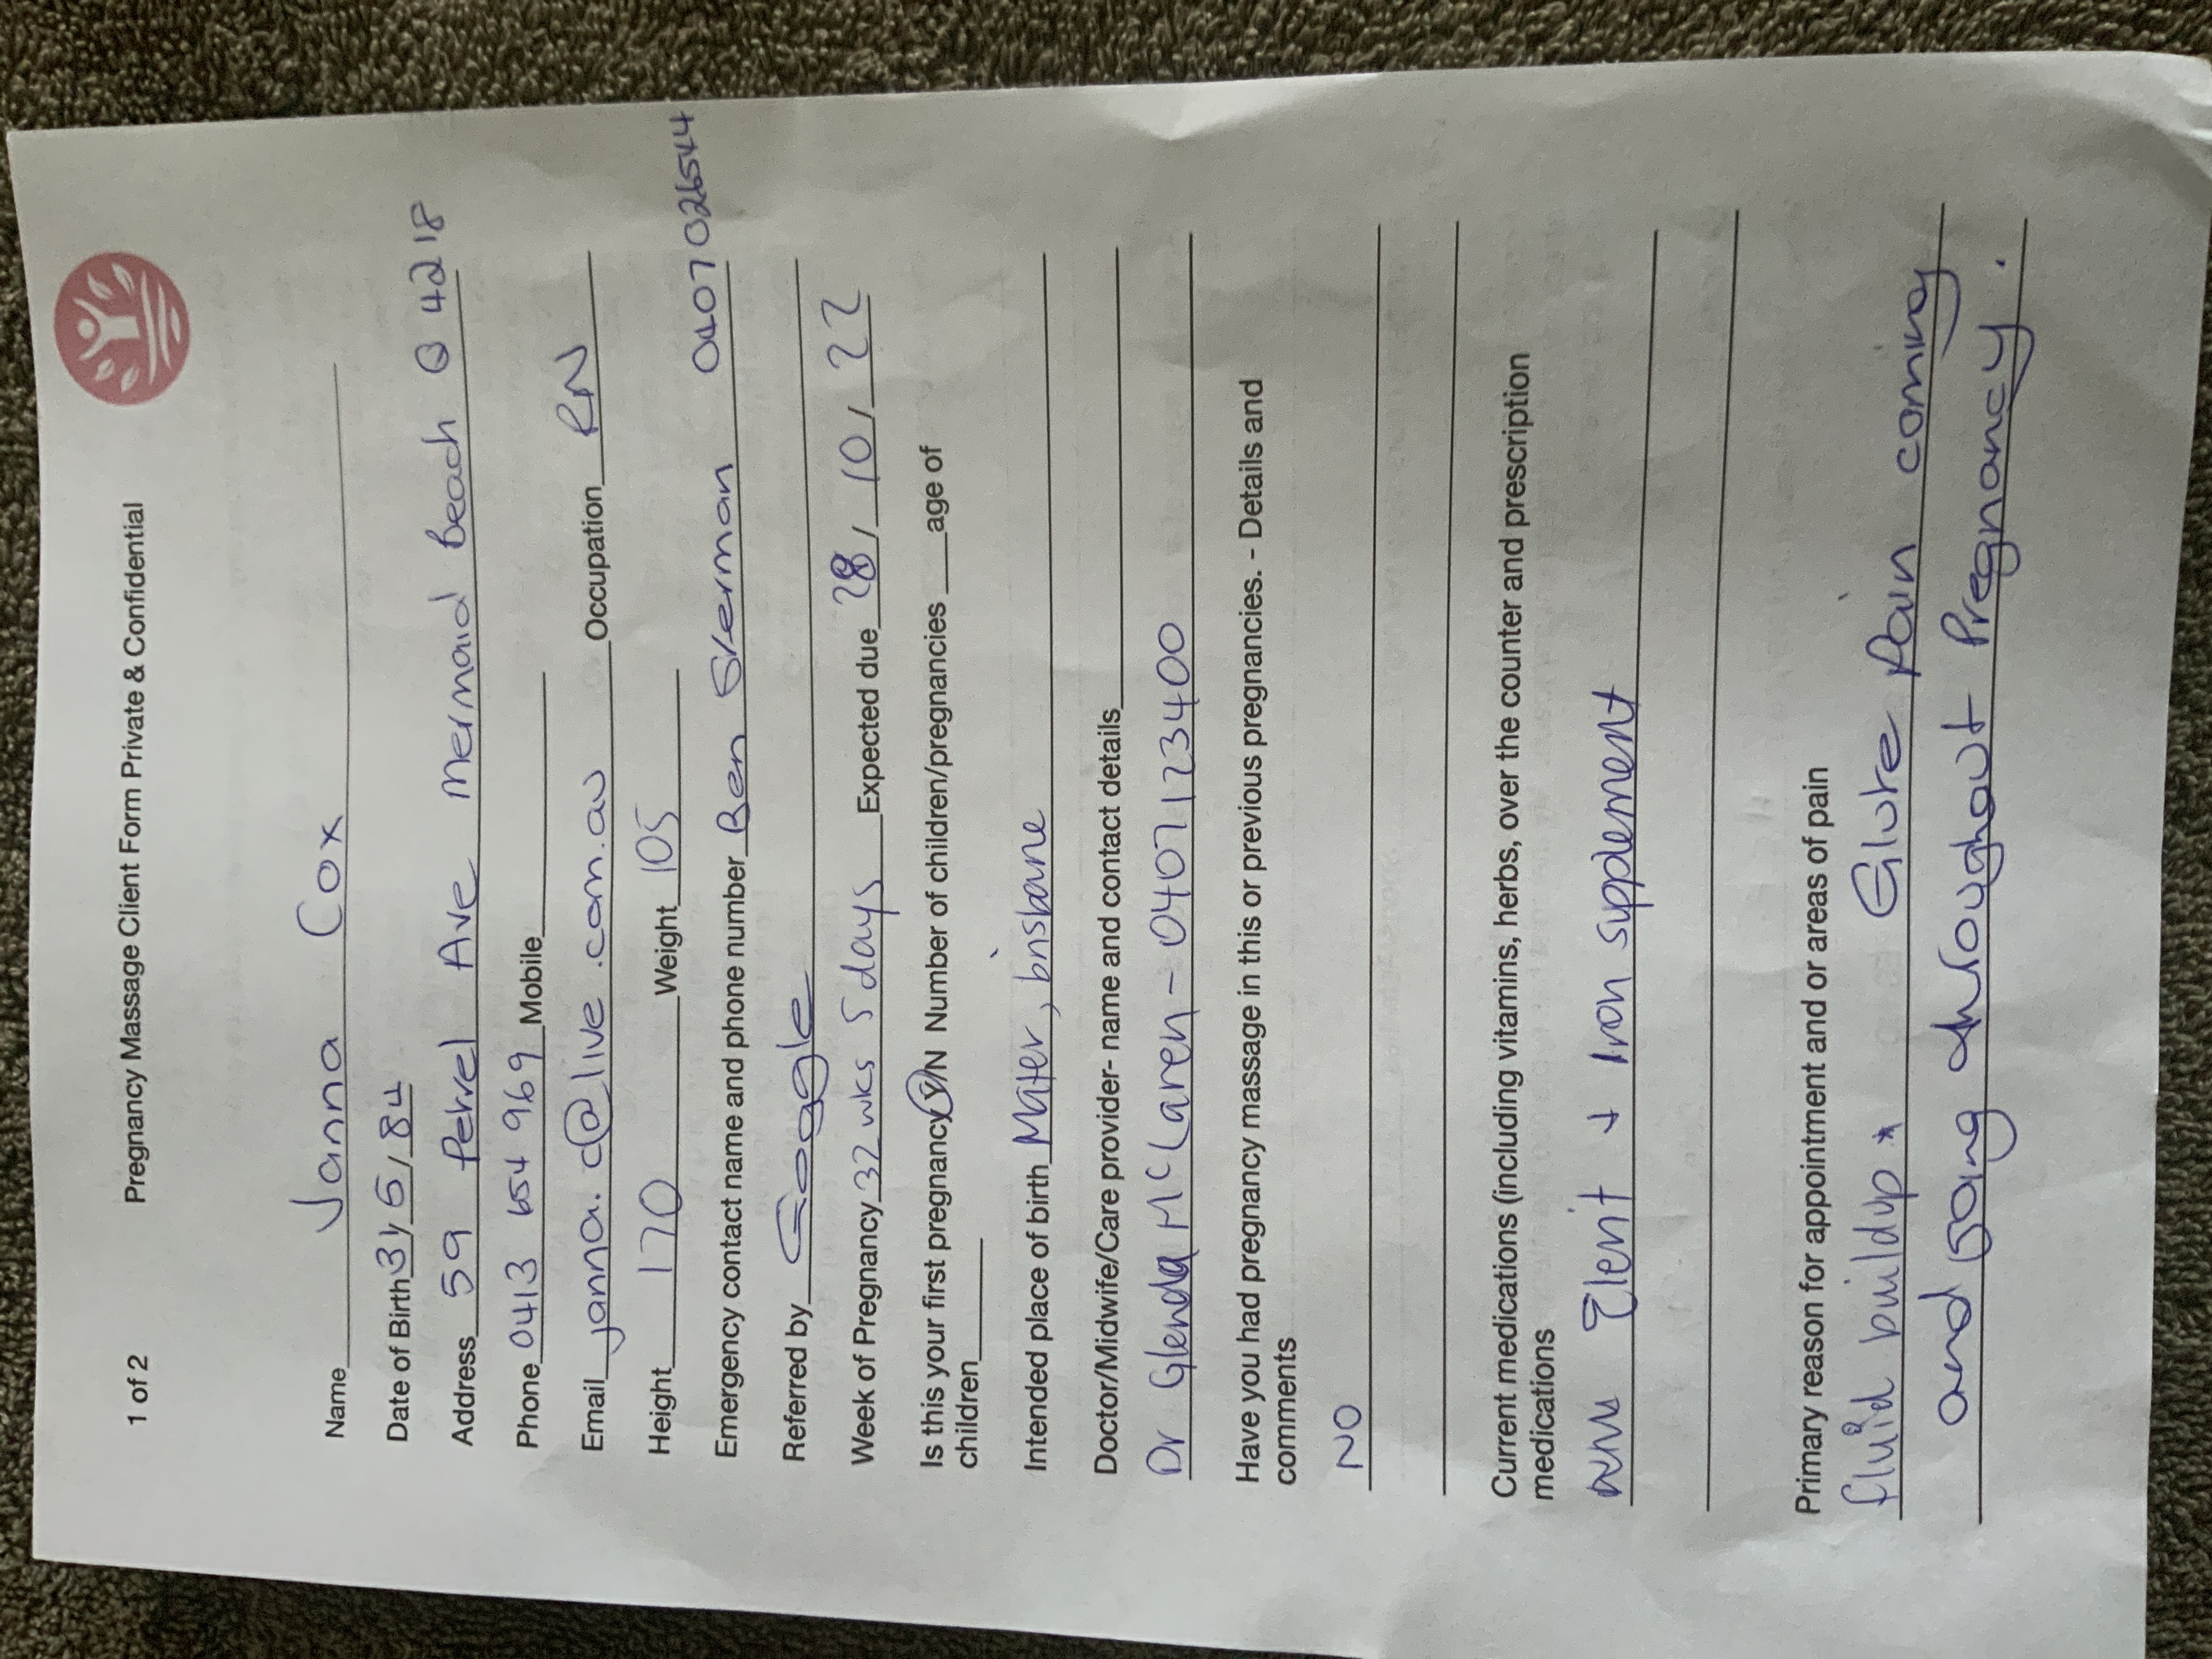 1 of 2 Pregnancy Massage Client Form Private & Confidential
Name Janna Cox
Date of Birth 31/5/84
Address 59 Petrel Ave Mermaid Beach Q 4218
Phone 0413 654 969 Mobile
Email janna.c@live.com.au Occupation RN
Height 170 Weight 105
Emergency contact name and phone number Ben 0407026544
Referred by Google
Week of Pregnancy 32 wks 5 days Expected due 28/10/22
Is this your first pregnancy Y/N Number of children/pregnancies ___age of
children
Intended place of birth Mater, brisbane
Doctor/Midwife/Care provider- name and contact details
Dr Glenda McLaren - 0407123400
Have you had pregnancy massage in this or previous pregnancies. - Details and
comments
NO
Current medications (including vitamins, herbs, over the counter and prescription
medications
Elevit + Iron supplement
Primary reason for appointment and or areas of pain
fluid buildup * Glute Pain coming
and going throughout Pregnancy.